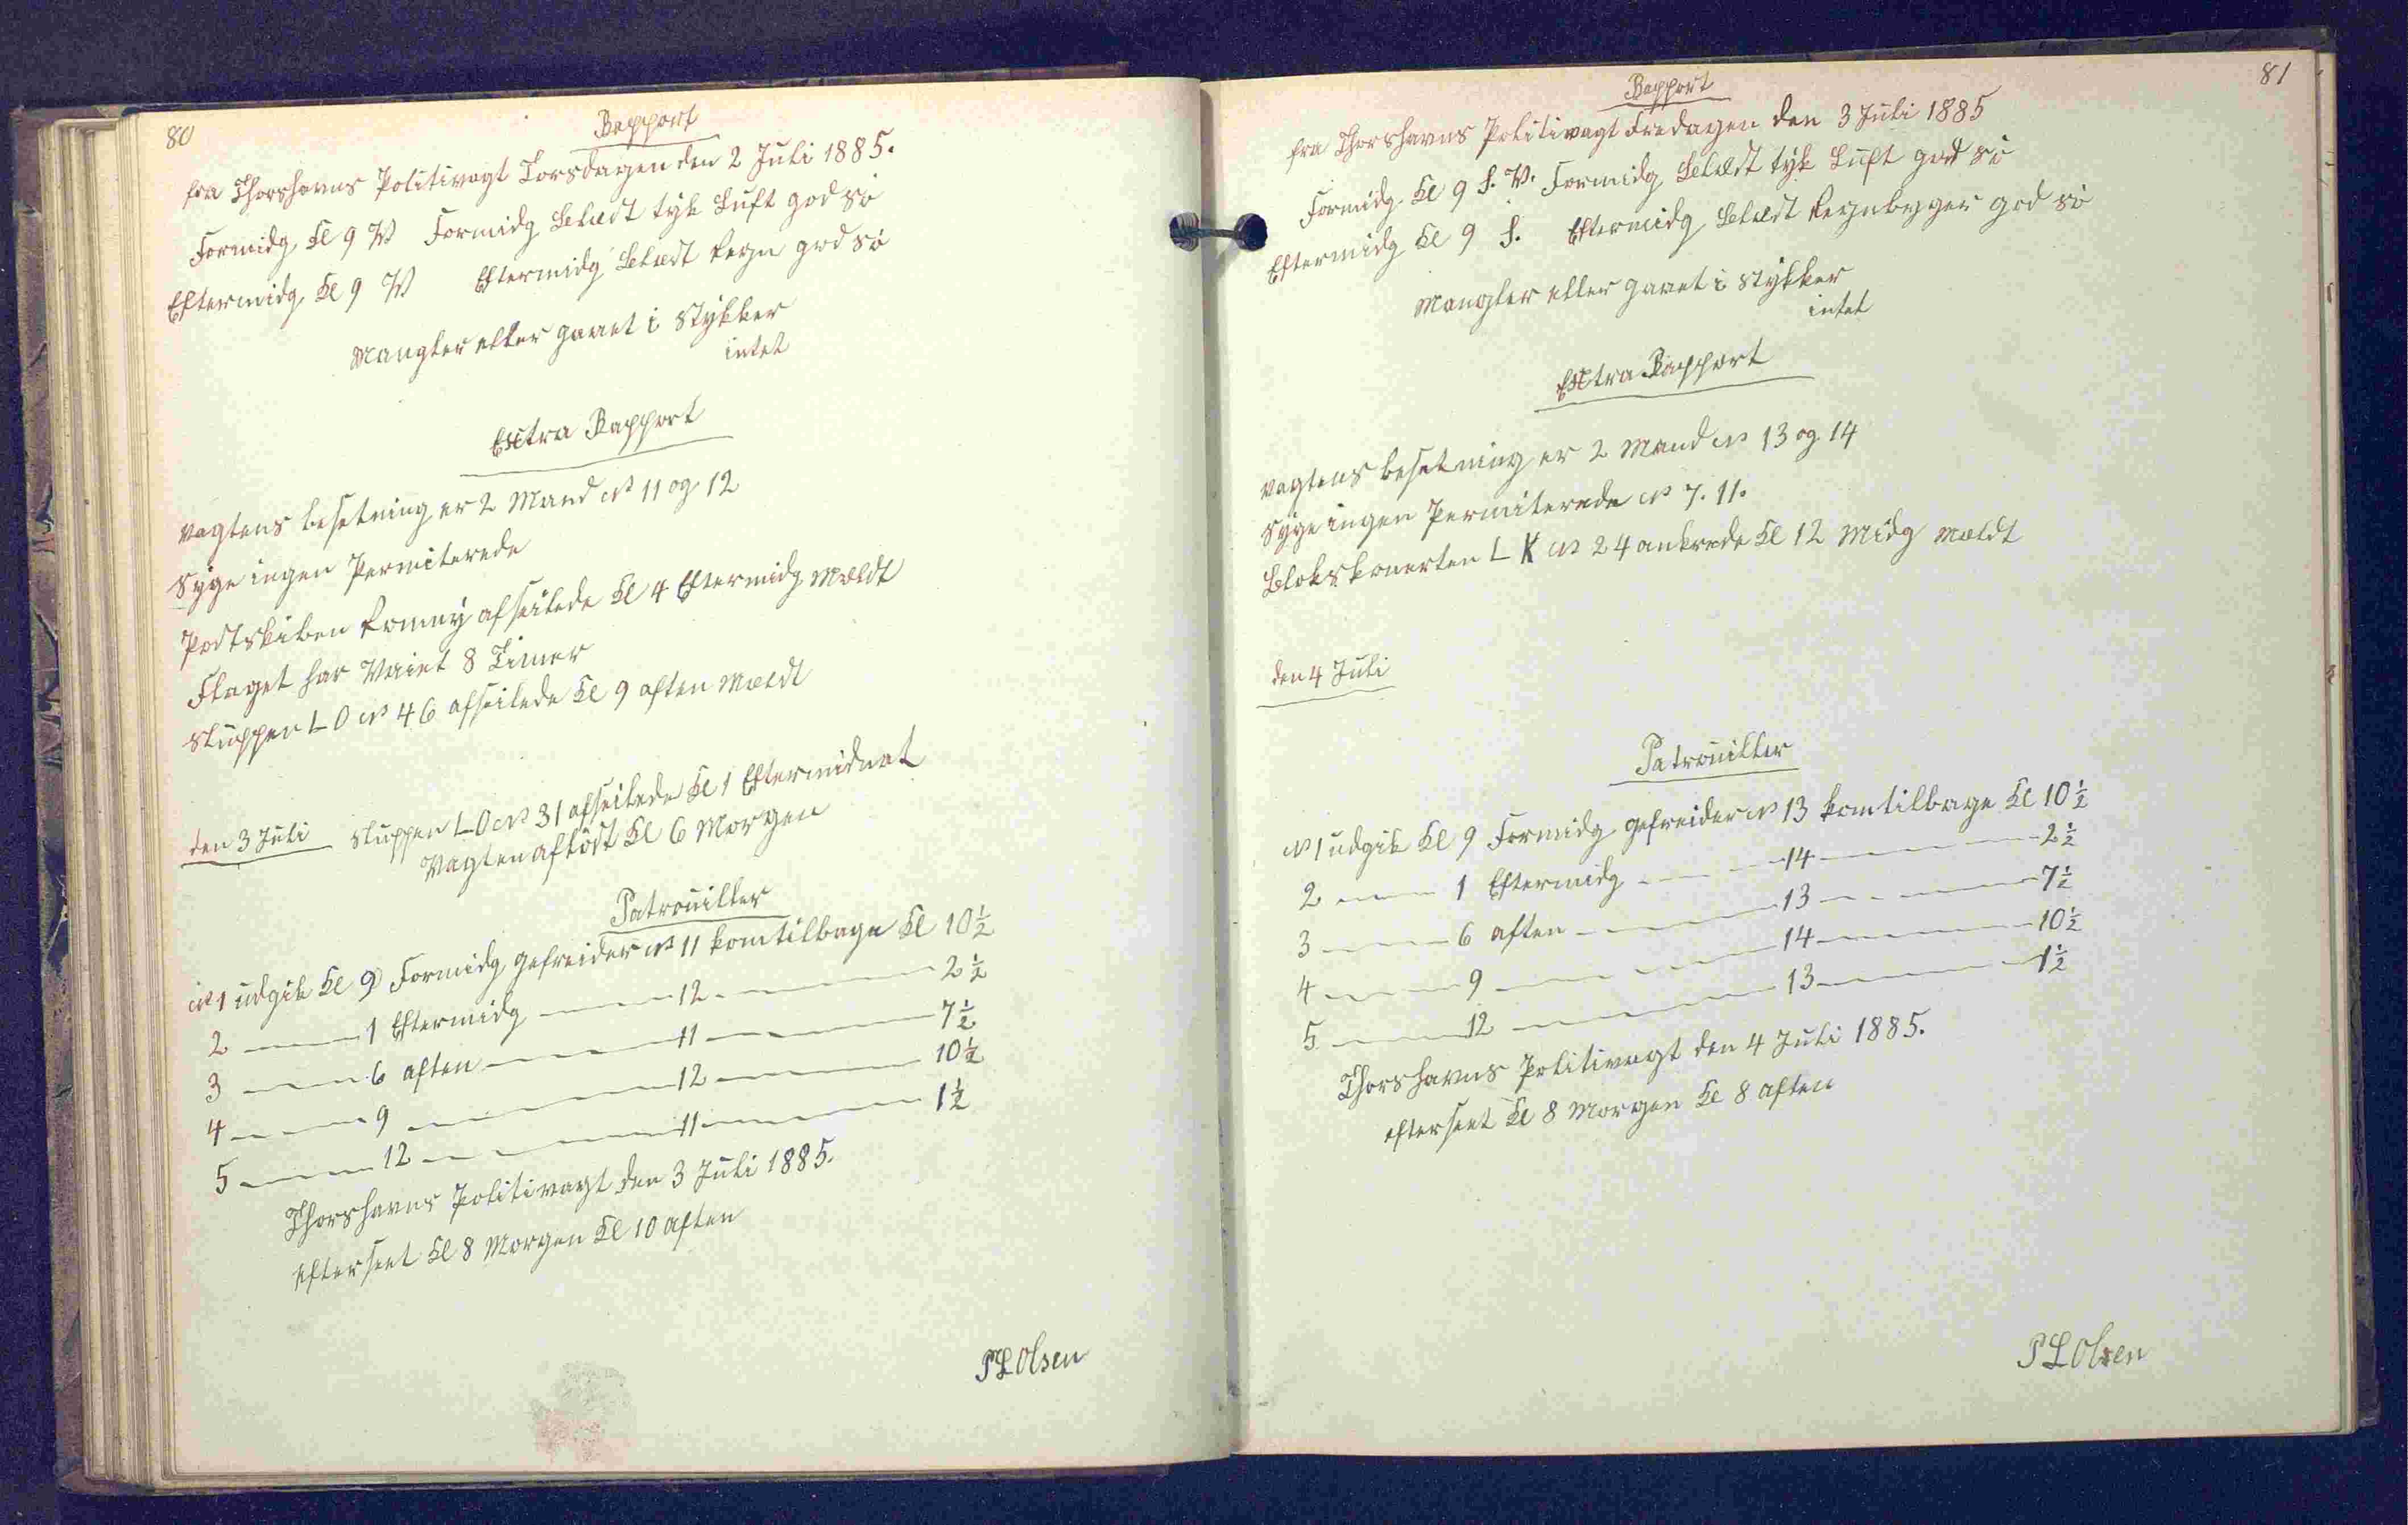 80
Rapport
fra Thorshavns Politivagt Torsdagen den 2 Juli 1885.
Formidg. Kl 9 W Formidg Belædt tyk Luft god sö
Eftermidg. Kl 9 W Eftermidg Belædt Regn god sö
Mangler eller gaaet i Stykker
intet
Extra Rapport
Vagtens besetning er 2 Mand No 11 og 12
Syge ingen Permiterede
Postskiben Romny afseilede Kl 4 Eftermidg Mældt
Flaget har Vaiet 8 Timer
Sluppen L O No 46 afseilede Kl 9 aften Mældt
den 3 Juli Sluppen L O No 31 afseilede Kl 1 Eftermidnat
Vagten aflöst Kl 6 Morgen
Patrouiller
No 1 udgik Kl 9 Formidg gefreider No 11 kom tilbage Kl 10½
2 — 1 Eftermidg — 12 — 2½
3 — 6 aften — 11 — 7½
4 — 9 — 12 — 10½
5 — 12 — 11 — 1½
Thorshavns Politivagt den 3 Juli 1885.
efterseet Kl 8 Morgen Kl 10 aften
P L Olsen
81
Rapport
fra Thorshavns Politivagt Fredagen den 3 Juli 1885
Formidg Kl 9 S. V. Formidg Belædt tyk Luft god sö
Eftermidg Kl 9 S. Eftermidg Belædt Regnbyger god sö
Mangler eller gaaet i Stykker
intet
Extra Rapport
Vagtens besetning er 2 Mand No 13 og 14
Syge ingen Permiterede No 7. 11.
Blokskonerten L K No 24 ankrede Kl 12 Midg Mældt
den 4 Juli
Patrouiller
No 1 udgik Kl 9 Formidg gefreider No 13 kom tilbage Kl 10½
2 — 1 Eftermidg — 14 — 2½
3 — 6 aften — 13 — 7½
4 — 9 — 14 — 10½
5 — 12 — 13 — 1½
Thorshavns Politivagt den 4 Juli 1885.
efterseet Kl 8 Morgen Kl 8 aften
P L Olsen